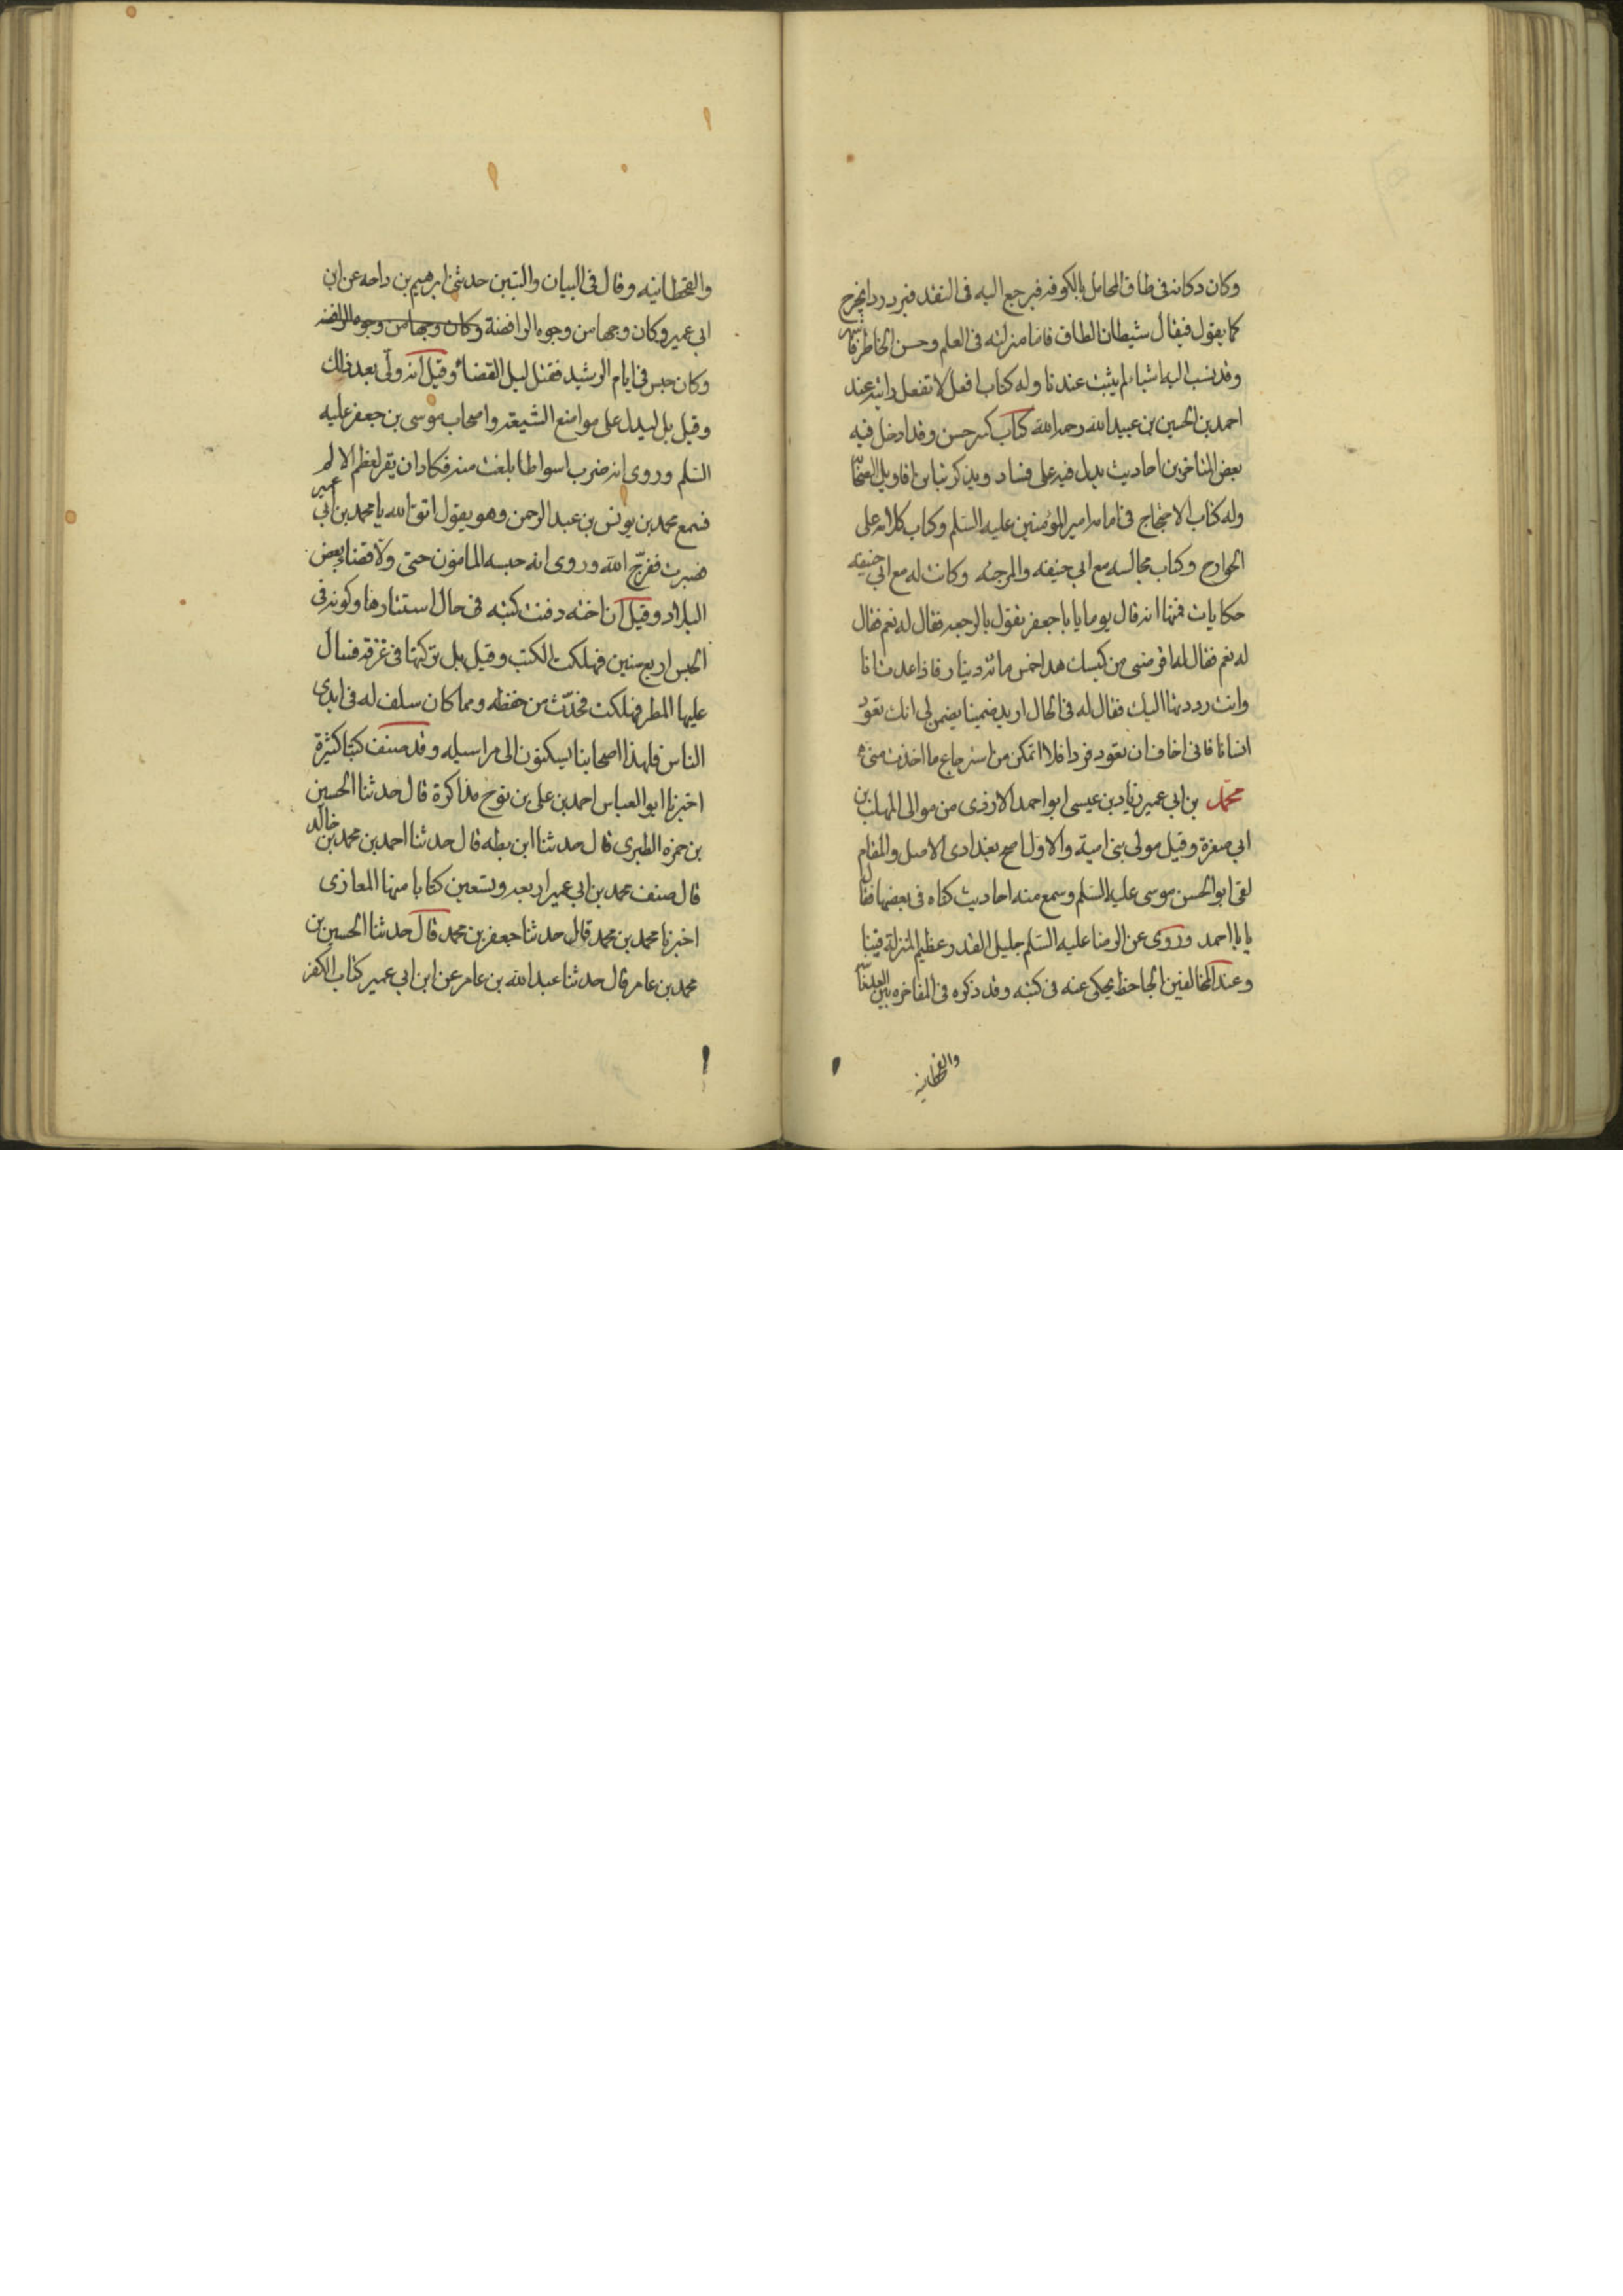 وكان دكانه فى طاق المحامل بالكوفه فيرجع اليه فى النقد فيرد ردا يخرج
كما يقول فيقال شيطان الطاق فاما منزلته فى العلم وحسن الخاطر فاشهر
وقد نسب اليه اشياء لم يثبت عندنا وله كتاب افعل لا تفعل رايته عند
احمد بن الحسين بن عبيد الله رحمه الله كتاب كبير حسن وقد ادخل فيه
بعض المتاخرين احاديث يدل فيه على فساد ويذكر تباين اقاويل الصحا
وله كتاب الاحتجاج فى امامه امير المؤمنين عليه السلم وكتاب كلامه على
الخوارج وكتاب مجالسه مع ابي حنيفه والمرجئه وكانت له مع ابي حنيفه
حكايات فمنها انه قال يوما يا با جعفر تقول بالرجعه فقال له نعم فقال
له نعم فقال له اقرضنى من كيسك هذا خمس مائه دينار فاذا عدت انا
وانت رددتها اليك فقال له فى الحال اريد ضمينا يضمن لى انك تعود
انسانا فانى اخاف ان تعود قردا فلا اتمكن من استرجاع ما اخذت منى ه
محمد بن ابي عمير زياد بن عيسى ابو احمد الازدى من موالى المهلب بن
ابي صفرة وقيل مولى بنى امية والاول اصح بغدادى الاصل والمقام
لقى ابو الحسن موسى عليه السلم وسمع منه احاديث كناه فى بعضها فقال
يا با احمد وروى عن الرضا عليه السلم جليل القدر عظيم المنزلة فينا
وعند المخالفين الجاحظ يحكى عنه فى كتبه وقد ذكره فى المفاخره بين العدنانيه
والقحطانيه
والقحطانيه وقال فى البيان والتبين حدثنى ابرهيم بن داحه عن ابن
ابى عمير وكان وجها من وجوه الرافضة وكان وجها من وجوه الرافضه
وكان حبس فى ايام الرشيد فقتل ليل القضاء وقيل انه ولى بعد ذلك
وقيل بل ليدل على مواضع الشيعه واصحاب موسى بن جعفر عليه
السلم وروى انه ضرب اسواطا بلغت منه فكاد ان يقر لعظم الالم
فسمع محمد بن يونس بن عبد الرحمن وهو يقول اتق الله يا محمد بن ابي عمير
فصبرت ففرج الله وروى انه حبسه المامون حتى ولاه قضاء بعض
البلاد وقيل ان اخته دفنت كتبه فى حال استتارها وكونه فى
الحبس اربع سنين فهلكت الكتب وقيل بل تركتها فى غرفه فسال
عليها المطر فهلكت فحدث من حفظه ومما كان سلف له فى ايدى
الناس فلهذا اصحابنا يسكنون الى مراسيله وقد صنف كتبا كثيرة
اخبرنا ابو العباس احمد بن على بن نوح مذاكرة قال حدثنا الحسين
بن حمزه الطبرى قال حدثنا ابن بطه قال حدثنا احمد بن محمد بن خالد
قال صنف محمد بن ابي عمير اربعه وتسعين كتابا منها المغازى
اخبرنا محمد بن محمد قال حدثنا جعفر بن محمد قال حدثنا الحسين بن
محمد بن عامر قال حدثنا عبد الله بن عامر عن ابن ابي عمير كتاب الكفر